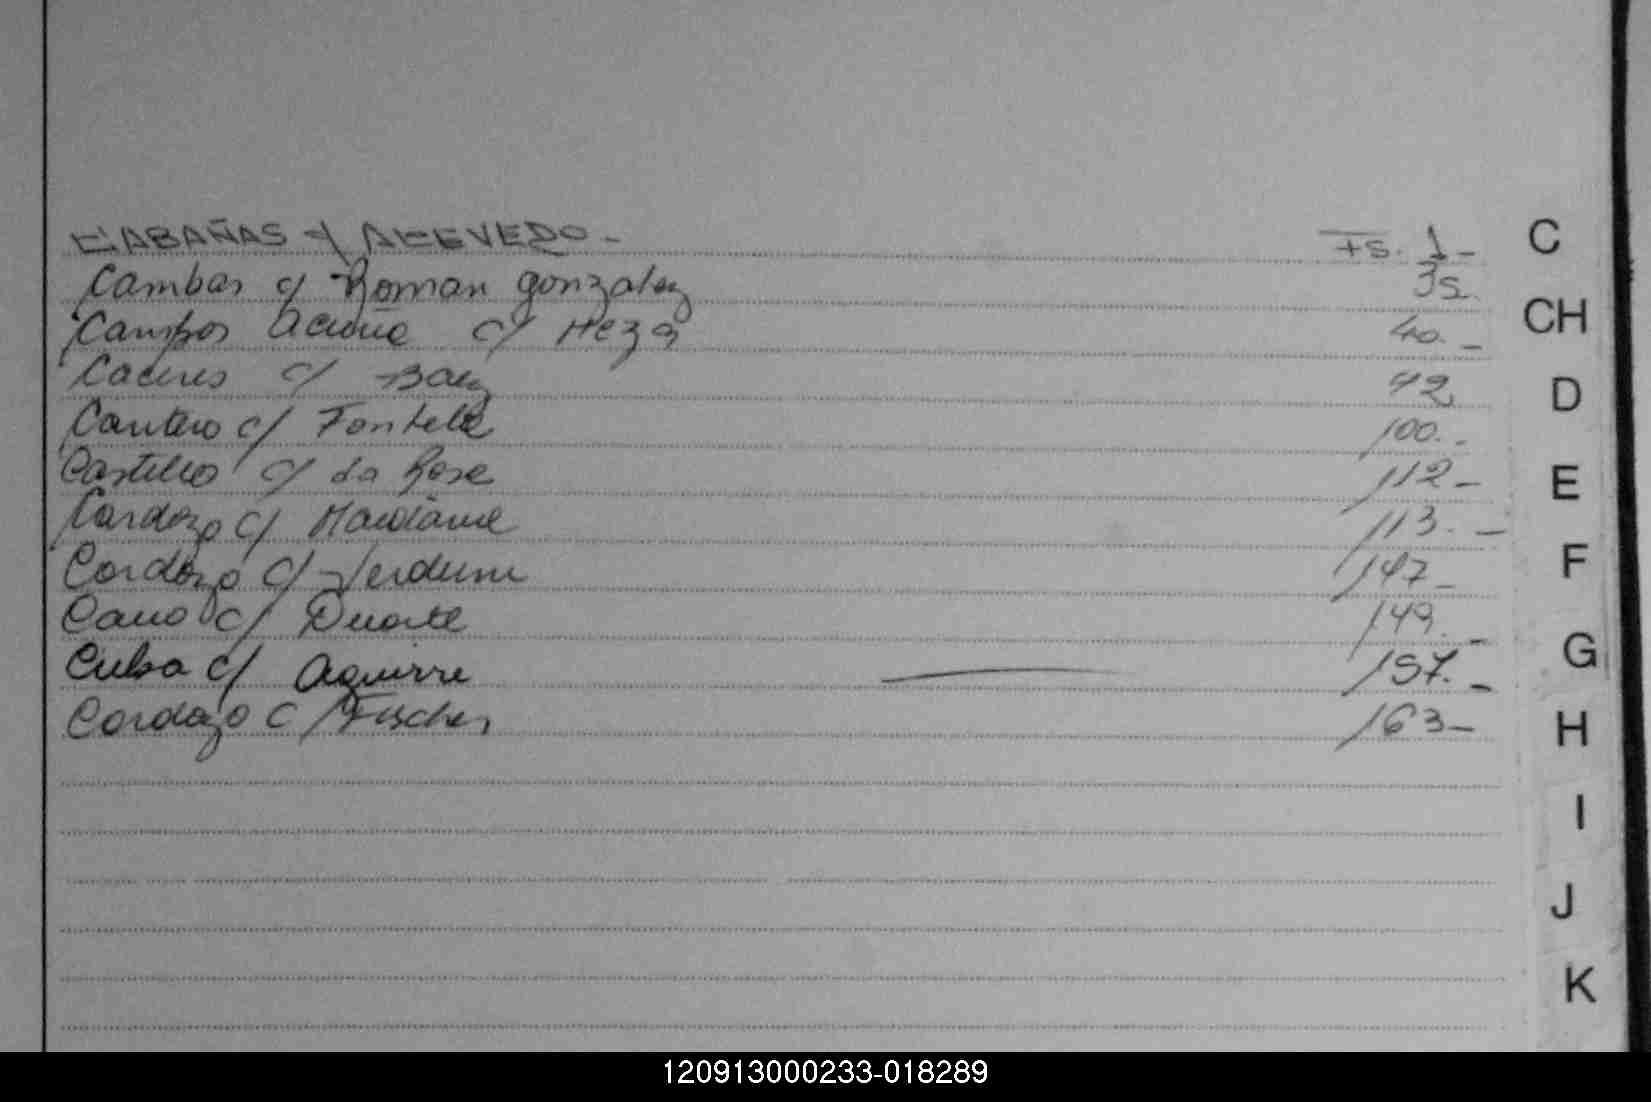 CABAÑAS c/ ACEVEDO - Fs. 1 -
C
Cambas c/ Roman gonzalez 35.
Campos Acuña c/ Meza 40. -
CH
Caceres c/ Baez
D
Cantero c/ Fontela 100. -
Castillo c/ da Rosa 112 -
E
Cardozo c/ 113. -
Cordozo c/ Verdum 147 -
F
Cano c/ Duarte 149. -
Cuba c/ Aguirre 157. -
G
Cordozo c/ Fischer 163 -
H
I
J
K
120913000233-018289